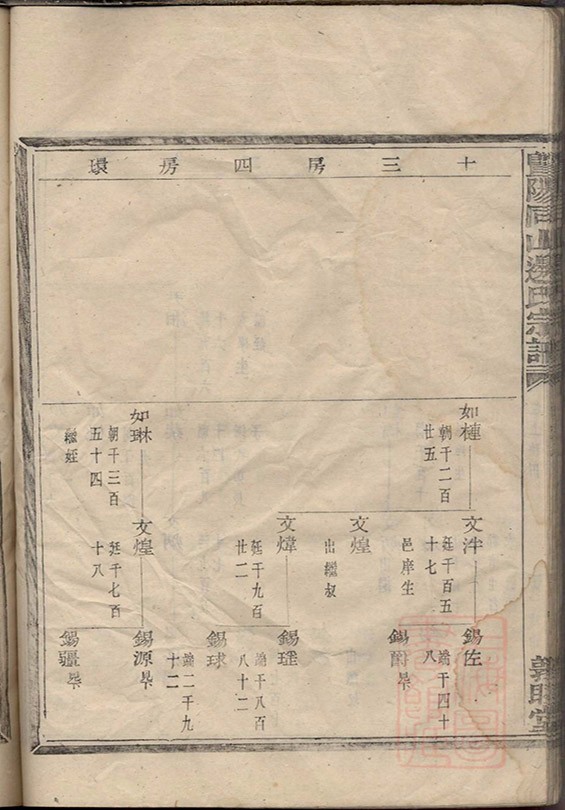 暨陽同山邊氏宗譜
敦睦堂
十三房四房環
如橦
朝千二百
廿五
文泮
廷千百五
十七
邑庠生
錫佐
端千四十
八
錫爵
文煌
出繼叔
文煒
廷千九百
廿二
錫瑶
端千八百
八十二
錫球
如琳
朝千三百
五十四
繼姪
文煌
廷千七百
十八
錫源
端二千九
十二
錫疆